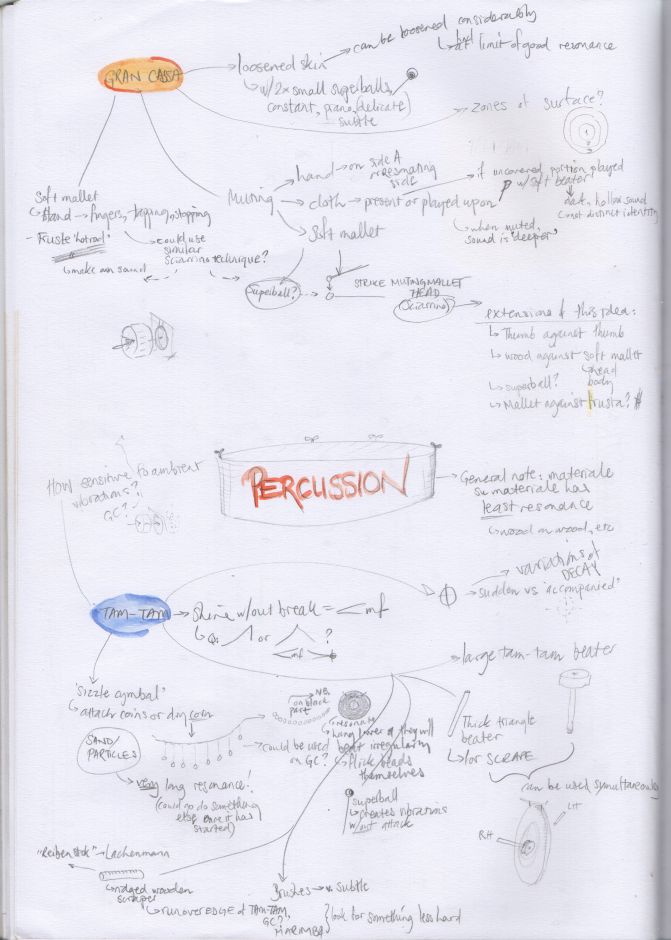 GRAN CASSA
loosened skin
can be loosened considerably
↳ at limit of good resonance
↳ w/ 2x small superballs,
constant, piano, (delicate)
subtle
zones of surface?
Soft mallet
↳ Hand → fingers, tapping, stopping
- Fruste 'hotrod'
↳ make own sound
↳ could use
similar
Sciarrino technique?
Muting
hand → on side A
side
cloth → present or played upon
if uncovered portion played
w/ soft beater
dark, hollow sound
↳ not distinct identity
↳ when muted,
sound is 'deeper'
soft mallet
Superball?
STRIKE MUTING MALLET
HEAD
(Sciarrino)
extensions of this idea:
↳ Thumb against thumb
↳ wood against soft mallet
↳ head
body
↳ superball?
↳ Mallet against frusta?
PERCUSSION
How sensitive to ambient
vibrations?
GC?
General note: materiale
su materiale has
least resonance
↳ wood on wood, etc
TAM-TAM
w/out break = < mf
or ?
< mf >
→ variations of
DECAY
→ sudden vs 'accompanied'
large tam-tam beater
'sizzle cymbal'
↳ attach coins or dry corn
SAND/
PARTICLES
↳ very long resonance!
(could go do something
else once it has
started)
↳ could be used
on GC?
N.B.
on black
part
↳ resonate
↳ hang lower & they will
beat irregularly
↳ flick beads
themselves
Thick triangle
beater
↳ for SCRAPE
can be used simultaneously
LH
RH
superball
↳ creates vibrations
w/out attack
"Reibenstock" → Lachenmann
↳ ridged wooden
scraper
↳ run over EDGE of TAM-TAM,
GC?
MARIMBA
Brushes → v. subtle
look for something less hard